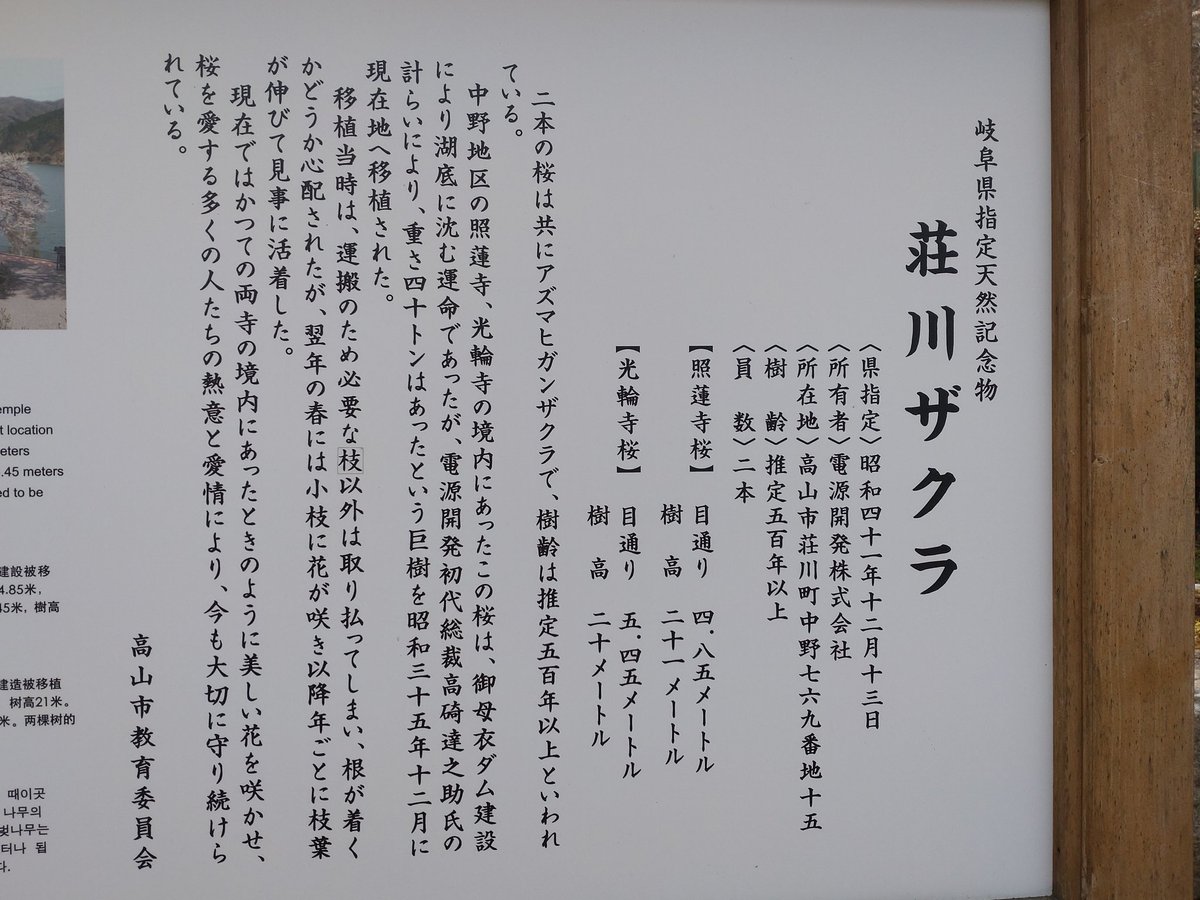 岐阜県指定天然記念物
荘川ザクラ
〈県指定〉昭和四十一年十二月十三日
〈所有者〉電源開発株式会社
〈所在地〉高山市荘川町中野七六九番地十五
〈樹　齢〉推定五百年以上
〈員　数〉二本
【照蓮寺桜】　目通り　四.八五メートル
樹　高　二十一メートル
【光輪寺桜】　目通り　五.四五メートル
樹　高　二十メートル
二本の桜は共にアズマヒガンザクラで、樹齢は推定五百年以上といわれ
ている。
中野地区の照蓮寺、光輪寺の境内にあったこの桜は、御母衣ダム建設
により湖底に沈む運命であったが、電源開発初代総裁高碕達之助氏の
計らいにより、重さ四十トンはあったという巨樹を昭和三十五年十二月に
現在地へ移植された。
移植当時は、運搬のため必要な枝以外は取り払ってしまい、根が着く
かどうか心配されたが、翌年の春には小枝に花が咲き以降年ごとに枝葉
が伸びて見事に活着した。
現在ではかつての両寺の境内にあったときのように美しい花を咲かせ、
桜を愛する多くの人たちの熱意と愛情により、今も大切に守り続けら
れている。
高山市教育委員会
emple
t location
eters
.45 meters
ed to be
建設被移
4.85米，
45米，樹高
建造被移植
树高21米。
米。两棵树的
때이곳
나무의
벚나무는
터나 됩
다.